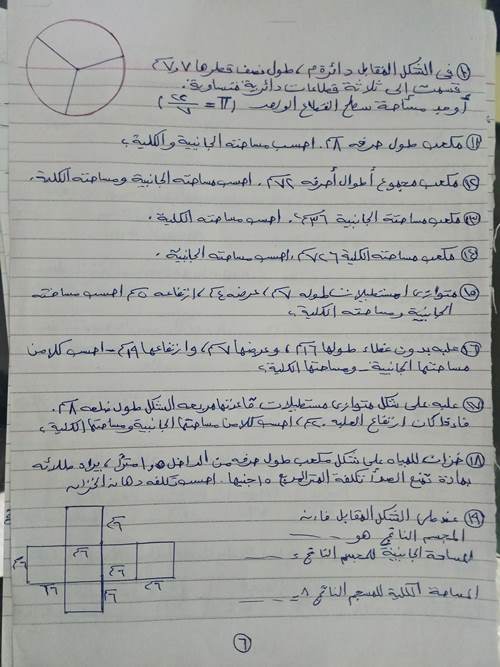 ١٠ فى الشكل المقابل دائرة م، طول نصف قطرها ٧ر٧سم
قسمت إلى ثلاثة قطاعات دائرية متساوية.
أوجد مساحة سطح القطاع الواحد (π = ٢٢/٧)
١١ مكعب طول حرفه ٨سم. احسب مساحته الجانبية والكلية؟
١٢ مكعب مجموع أطوال أحرفه ٧٢سم. احسب مساحته الجانبية ومساحته الكلية.
١٣ مكعب مساحته الجانبية ٣٦سم٢. احسب مساحته الكلية.
١٤ مكعب مساحته الكلية ٧٢٦سم٢، احسب مساحته الجانبية.
١٥ متوازى المستطيلات طوله ٧سم، عرضه ٤سم، ارتفاعه ٥سم احسب مساحته
الجانبية ومساحته الكلية؟
١٦ علبه بدون غطاء طولها ١٦سم، وعرضها ٧سم، وارتفاعها ١٩سم - احسب كلا من
مساحتها الجانبية - ومساحتها الكلية؟
١٧ علبه على شكل متوازى مستطيلات قاعدتها مربعه الشكل طول ضلعه ٨سم
فإذا كان ارتفاع العلبه ٢٠سم، احسب كلا من مساحتها الجانبية ومساحتها الكلية؟
١٨ خزان للمياه على شكل مكعب طول حرفه من الداخل ٥ر١ متراً، يراد طلائه
بمادة تمنع الصدأ تكلفة المتر المربع ١٥ جنيها. احسب تكلفه دهان الخزان
١٩ عند طى الشكل المقابل فإن
المجسم الناتج هو ـــــ
المساحة الجانبية للمجسم الناتج = ــــ
المساحة الكلية للمجسم الناتج = ـــــ
٦سم
٦سم
٦سم
٦سم
٦سم
٦سم
٦سم
٦